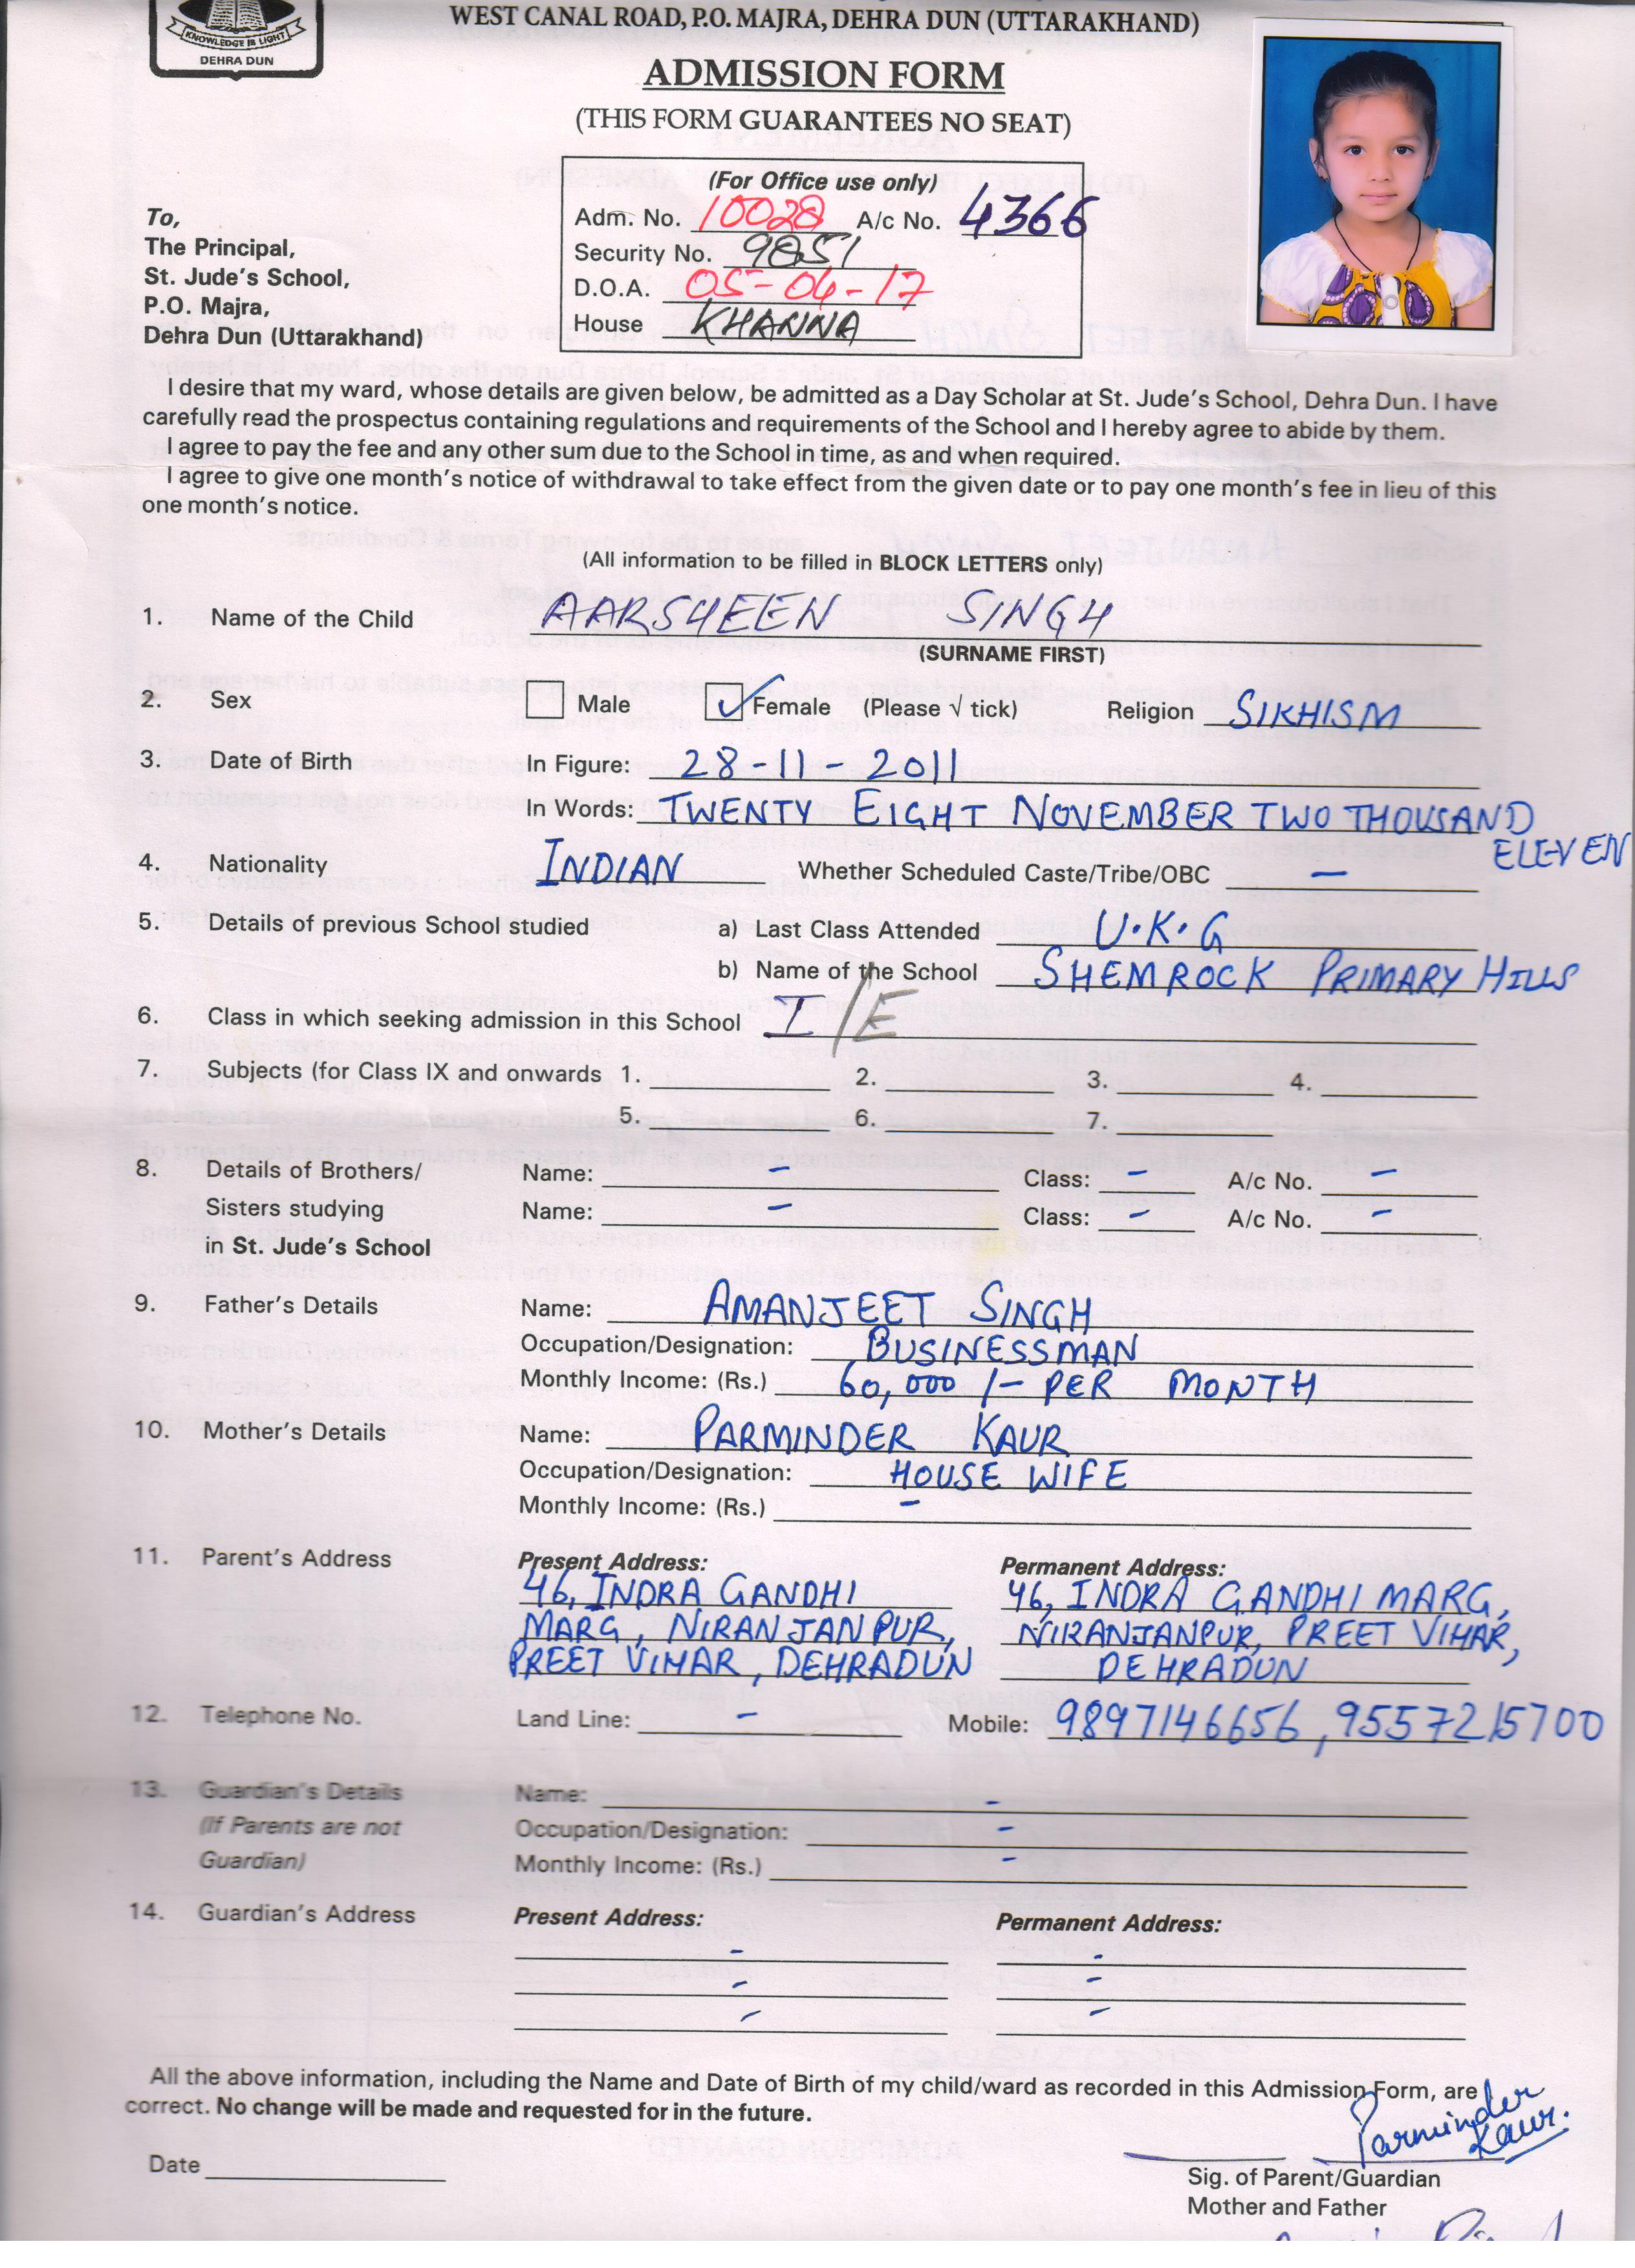 KNOWLEDGE IS LIGHT
DEHRA DUN
WEST CANAL ROAD, P.O. MAJRA, DEHRA DUN (UTTARAKHAND)
ADMISSION FORM
(THIS FORM GUARANTEES NO SEAT)
(For Office use only)
Adm. No. 10028 A/c No. 4366
Security No. 9851
D.O.A. 05-04-17
House KHANNA
To,
The Principal,
St. Jude's School,
P.O. Majra,
Dehra Dun (Uttarakhand)
I desire that my ward, whose details are given below, be admitted as a Day Scholar at St. Jude's School, Dehra Dun. I have
carefully read the prospectus containing regulations and requirements of the School and I hereby agree to abide by them.
I agree to pay the fee and any other sum due to the School in time, as and when required.
I agree to give one month's notice of withdrawal to take effect from the given date or to pay one month's fee in lieu of this
one month's notice.
(All information to be filled in BLOCK LETTERS only)
1. Name of the Child AARSHEEN SINGH
(SURNAME FIRST)
2. Sex Male ✓ Female (Please √ tick) Religion SIKHISM
3. Date of Birth In Figure: 28-11-2011
In Words: TWENTY EIGHT NOVEMBER TWO THOUSAND
ELEVEN
4. Nationality INDIAN Whether Scheduled Caste/Tribe/OBC –
5. Details of previous School studied a) Last Class Attended U.K.G
b) Name of the School SHEMROCK PRIMARY HILLS
6. Class in which seeking admission in this School I/E
7. Subjects (for Class IX and onwards 1. 2. 3. 4.
5. 6. 7.
8. Details of Brothers/ Name: – Class: – A/c No. –
Sisters studying Name: – Class: – A/c No. –
in St. Jude's School
9. Father's Details Name: AMANJEET SINGH
Occupation/Designation: BUSINESSMAN
Monthly Income: (Rs.) 60,000 /- PER MONTH
10. Mother's Details Name: PARMINDER KAUR
Occupation/Designation: HOUSE WIFE
Monthly Income: (Rs.) –
11. Parent's Address Present Address: Permanent Address:
46, INDRA GANDHI 46, INDRA GANDHI MARG,
MARG, NIRANJANPUR, NIRANJANPUR, PREET VIHAR,
PREET VIHAR, DEHRADUN DEHRADUN
12. Telephone No. Land Line: – Mobile: 9897146656, 9557215700
13. Guardian's Details Name: –
(If Parents are not Occupation/Designation: –
Guardian) Monthly Income: (Rs.) –
14. Guardian's Address Present Address: Permanent Address:
– –
– –
– –
All the above information, including the Name and Date of Birth of my child/ward as recorded in this Admission Form, are
correct. No change will be made and requested for in the future.
Parminder
Kaur.
Date
Sig. of Parent/Guardian
Mother and Father